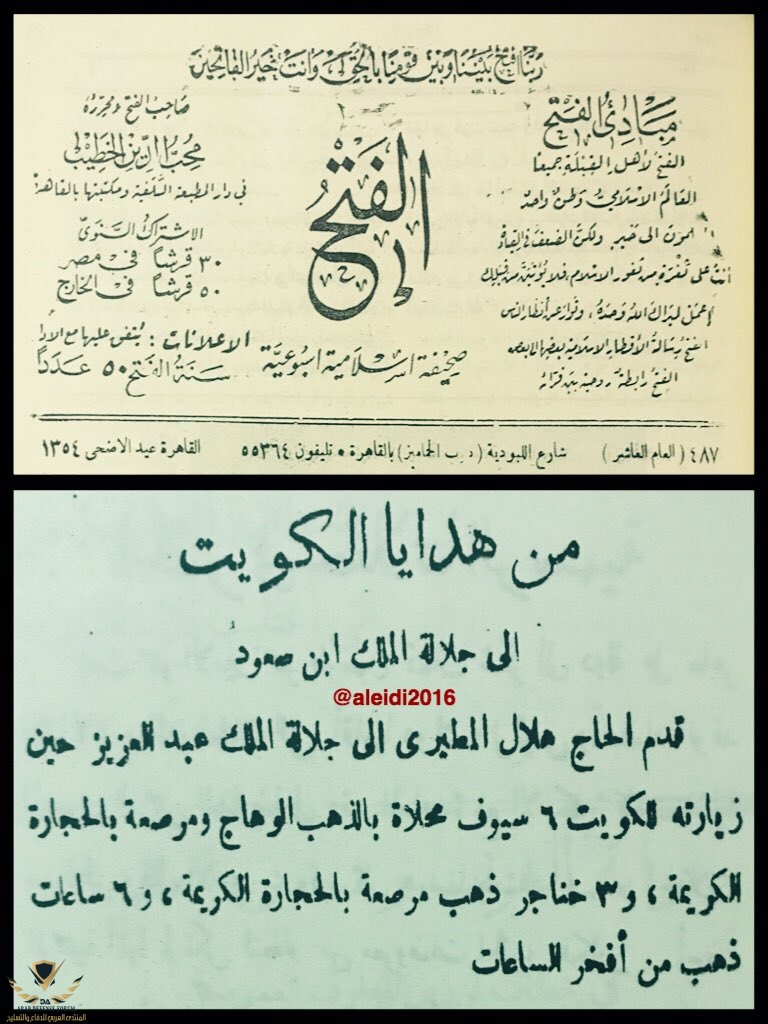 ربنا افتح بيننا وبين قومنا بالحق وانت خير الفاتحين
مبادئ الفتح
الفتح لأهل القبلة جميعا
العالم الاسلامي وطن واحد
الى خير ولكن الضعف في القيادة
أنت على ثغرة من ثغور الاسلام فلا يؤتين من قبلك
إعمل ليراك الله وحده، وتوار عن أنظار الناس
الفتح رسالة الأقطار الاسلامية بعضها الى بعض
الفتح رابطة روحية بين قرائه
الفتح
صحيفة اسلامية اسبوعية
صاحب الفتح ومحرره
محب الدين الخطيب
في دار المطبعة السلفية ومكتبتها بالقاهرة
الاشتراك السنوي
٣٠ قرشا في مصر
٥٠ قرشا في الخارج
الاعلانات : يتفق عليها مع الادارة
سنة الفتح ٥٠ عددا
٤٨٧ ( العام العاشر )
شارع اللبودية ( درب الجماميز ) بالقاهرة • تليفون ٥٥٣٦٤
القاهرة عيد الاضحى ١٣٥٤
من هدايا الكويت
الى جلالة الملك ابن سعود
@aleidi2016
قدم الحاج هلال المطيرى الى جلالة الملك عبد العزيز حين
زيارته للكويت ٦ سيوف محلاة بالذهب الوهاج ومرصعة بالحجارة
الكريمة ، و ٣ خناجر ذهب مرصعة بالحجارة الكريمة ، و ٦ ساعات
ذهب من أفخر الساعات
DA
ARAB DEFENSE FORUM
المنتدى العربي للدفاع والتسليح